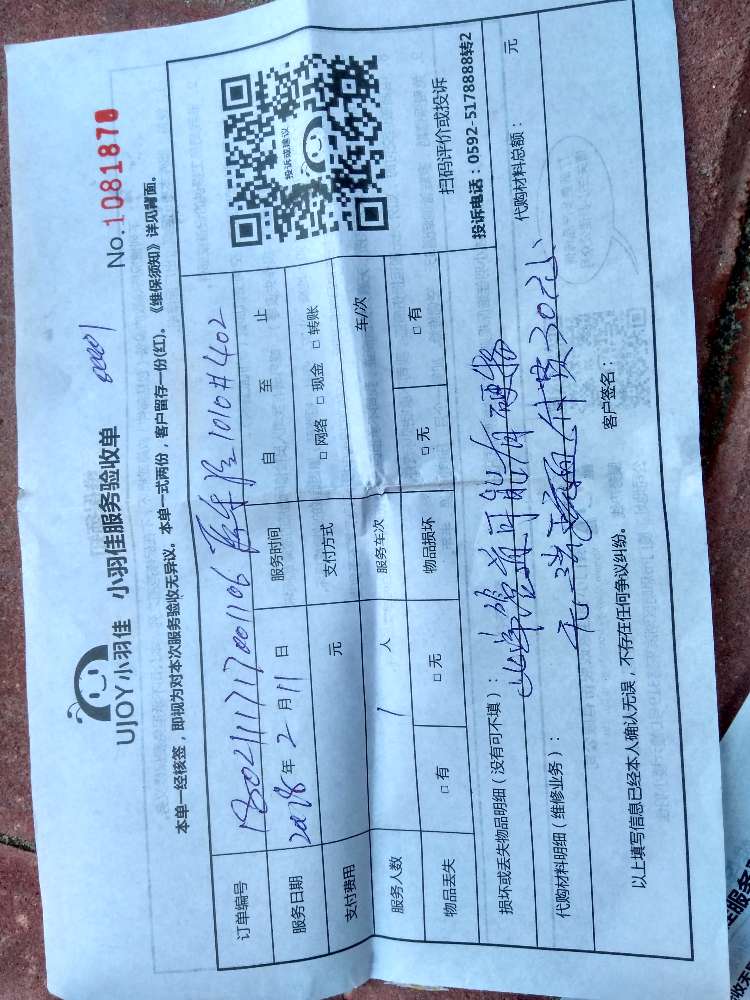 UJOY小羽佳 小羽佳服务验收单 No.1081878
本单一经核签，即视为对本次服务验收无异议。本单一式两份，客户留存一份(红)。《维保须知》详见背面。
订单编号 1802111717001106 1010#402
服务日期 2018年2月11日 服务时间 自 至 止
支付费用 元 支付方式 □网络 □现金 □转账
服务人数 1人 服务车次 车/次
物品丢失 □有 □无 物品损坏 □无 □有
投诉或建议
扫码评价或投诉
投诉电话：0592-5178888转2
损坏或丢失物品明细（没有可不填）： 此单管道可能有硬物
代购材料明细（维修业务）： 代购材料总额： 元
以上填写信息已经本人确认无误，不存在任何争议纠纷。
客户签名：